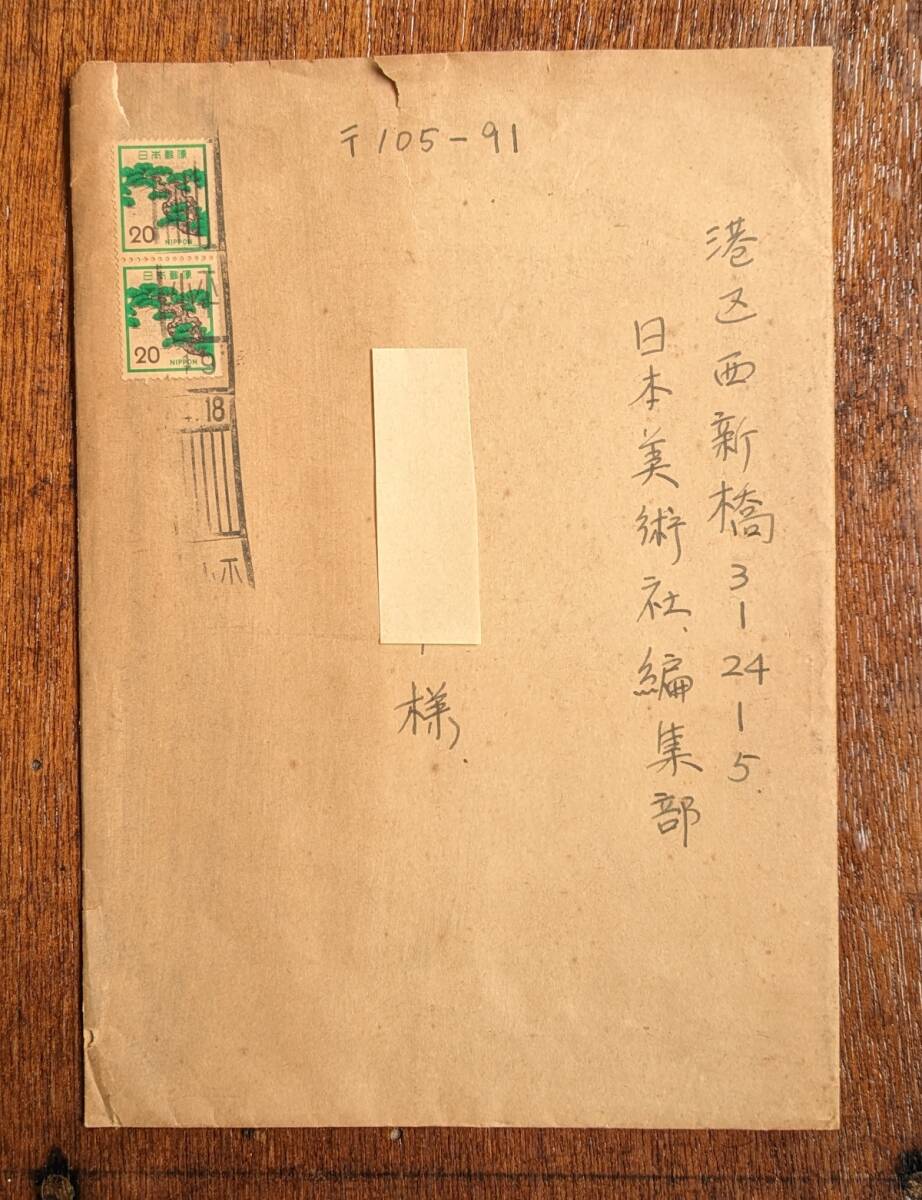 〒105-91
港区西新橋3-24-5
日本美術社、編集部
様
日本郵便
20
NIPPON
日本郵便
20
NIPPON
18